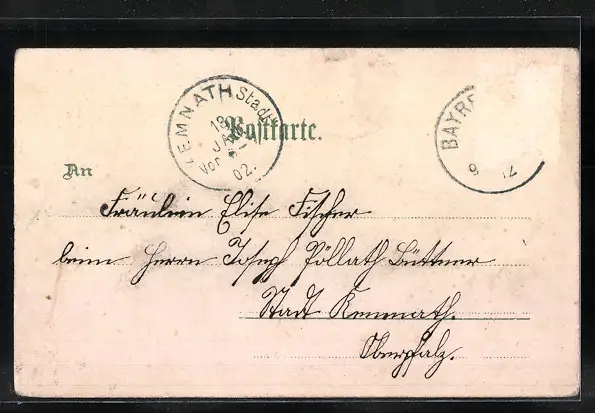 KEMNATH Stadt
13
JAN
Vor
02.
Postkarte.
BAYRE
9 12
An
Fräulein Elise Fischer
beim Herrn Joseph Pöllath Büttner
Stadt Kemnath.
Oberpfalz.